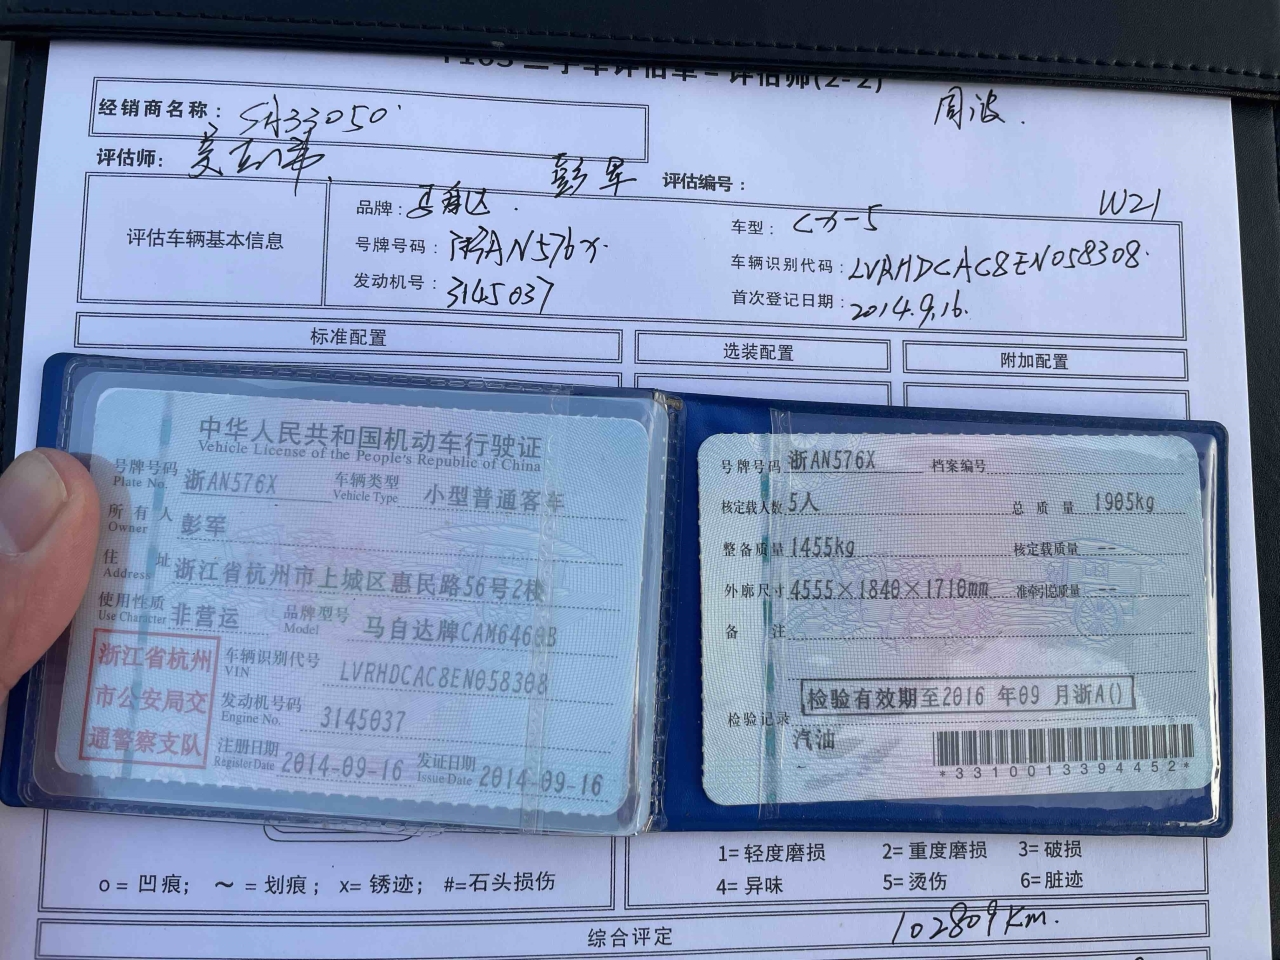 二手车评估单 - 评估师(2-2)
周波.
经销商名称: SA33050
评估师: 彭军 评估编号:
W21
评估车辆基本信息
品牌: 马自达. 车型: CX-5
号牌号码: 浙AN576X. 车辆识别代码: LVRHDCAC8EN058308.
发动机号: 3145037 首次登记日期: 2014.9.16.
标准配置 选装配置 附加配置
中华人民共和国机动车行驶证
Vehicle License of the People's Republic of China
号牌号码 浙AN576X 车辆类型 小型普通客车
Plate No. Vehicle Type
所有人 彭军
Owner
住址 浙江省杭州市上城区惠民路56号2楼
Address
使用性质 非营运 品牌型号 马自达牌CAM6460B
Use Character Model
浙江省杭州市公安局交通警察支队
车辆识别代号 LVRHDCAC8EN058308
VIN
发动机号码 3145037
Engine No.
注册日期 2014-09-16 发证日期 2014-09-16
Register Date Issue Date
号牌号码 浙AN576X 档案编号
核定载人数 5人 总质量 1905kg
整备质量 1455kg 核定载质量 --
外廓尺寸 4555×1840×1710mm 准牵引总质量 --
备注
检验有效期至2016 年09 月浙A()
检验记录
汽油
*3310013394452*
1= 轻度磨损 2= 重度磨损 3= 破损
o = 凹痕; ～ = 划痕; x= 锈迹; #=石头损伤
4= 异味 5= 烫伤 6= 脏迹
102809KM.
综合评定